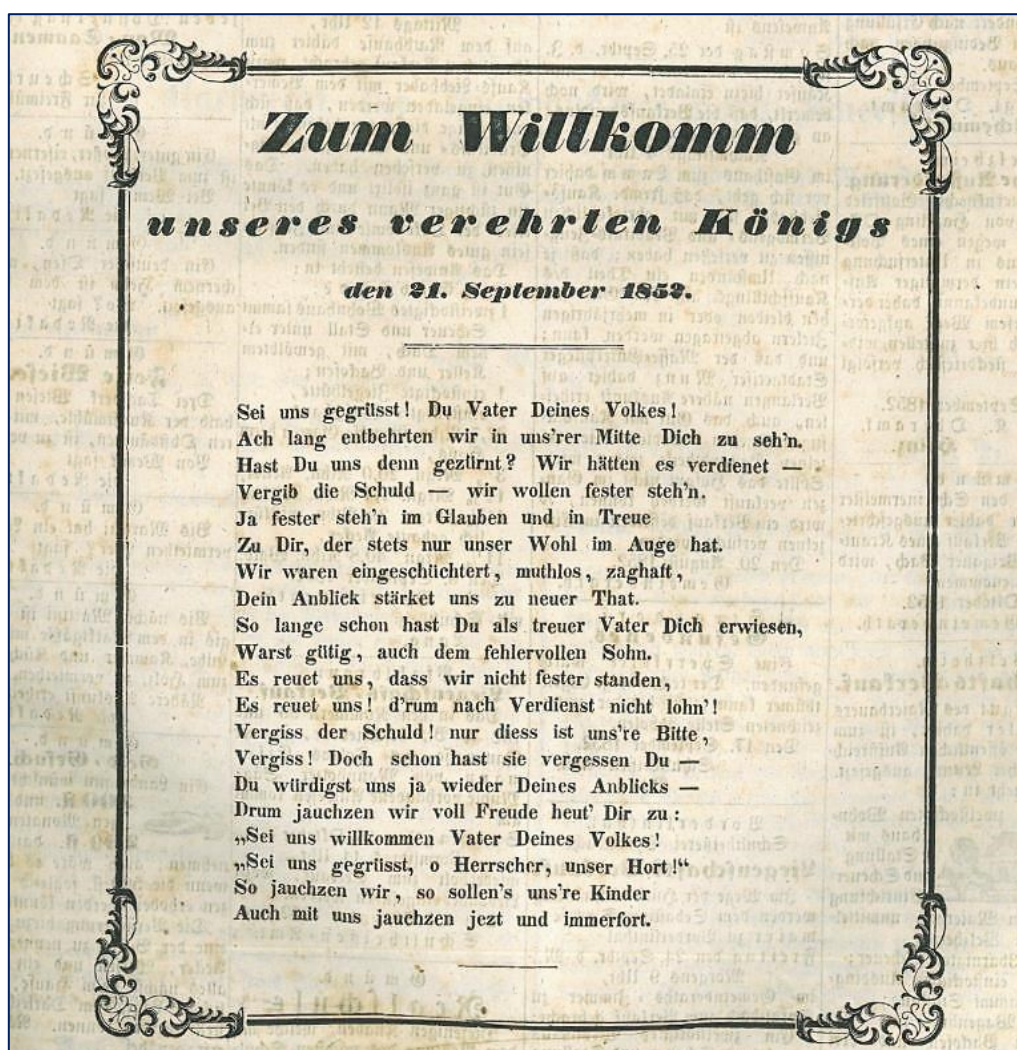 Zum Willkomm
unseres verehrten Königs
den 21. September 1852.
Sei uns gegrüsst! Du Vater Deines Volkes!
Ach lang entbehrten wir in uns'rer Mitte Dich zu seh'n.
Hast Du uns denn gezürnt? Wir hätten es verdienet —
Vergib die Schuld — wir wollen fester steh'n.
Ja fester steh'n im Glauben und in Treue
Zu Dir, der stets nur unser Wohl im Auge hat.
Wir waren eingeschüchtert, muthlos, zaghaft,
Dein Anblick stärket uns zu neuer That.
So lange schon hast Du als treuer Vater Dich erwiesen,
Warst gütig, auch dem fehlervollen Sohn.
Es reuet uns, dass wir nicht fester standen,
Es reuet uns! d'rum nach Verdienst nicht lohn'!
Vergiss der Schuld! nur diess ist uns're Bitte,
Vergiss! Doch schon hast sie vergessen Du —
Du würdigst uns ja wieder Deines Anblicks —
Drum jauchzen wir voll Freude heut' Dir zu:
„Sei uns willkommen Vater Deines Volkes!
„Sei uns gegrüsst, o Herrscher, unser Hort!“
So jauchzen wir, so sollen's uns're Kinder
Auch mit uns jauchzen jezt und immerfort.